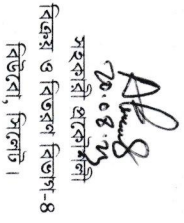 ২০.০৪.২৩
সহকারি প্রকৌশলী
বিক্রয় ও বিতরণ বিভাগ-৪
বিউবো, সিলেট।